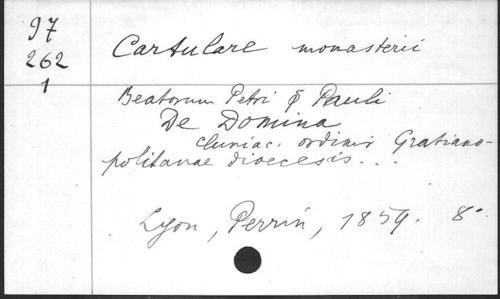 97
262
1
Cartulare monasterii
Beatorum Petri & Pauli
De Domina
Cluniac. ordinis Gratiano-
politanae dioecesis...
Lyon, Perrin, 1859. 8°